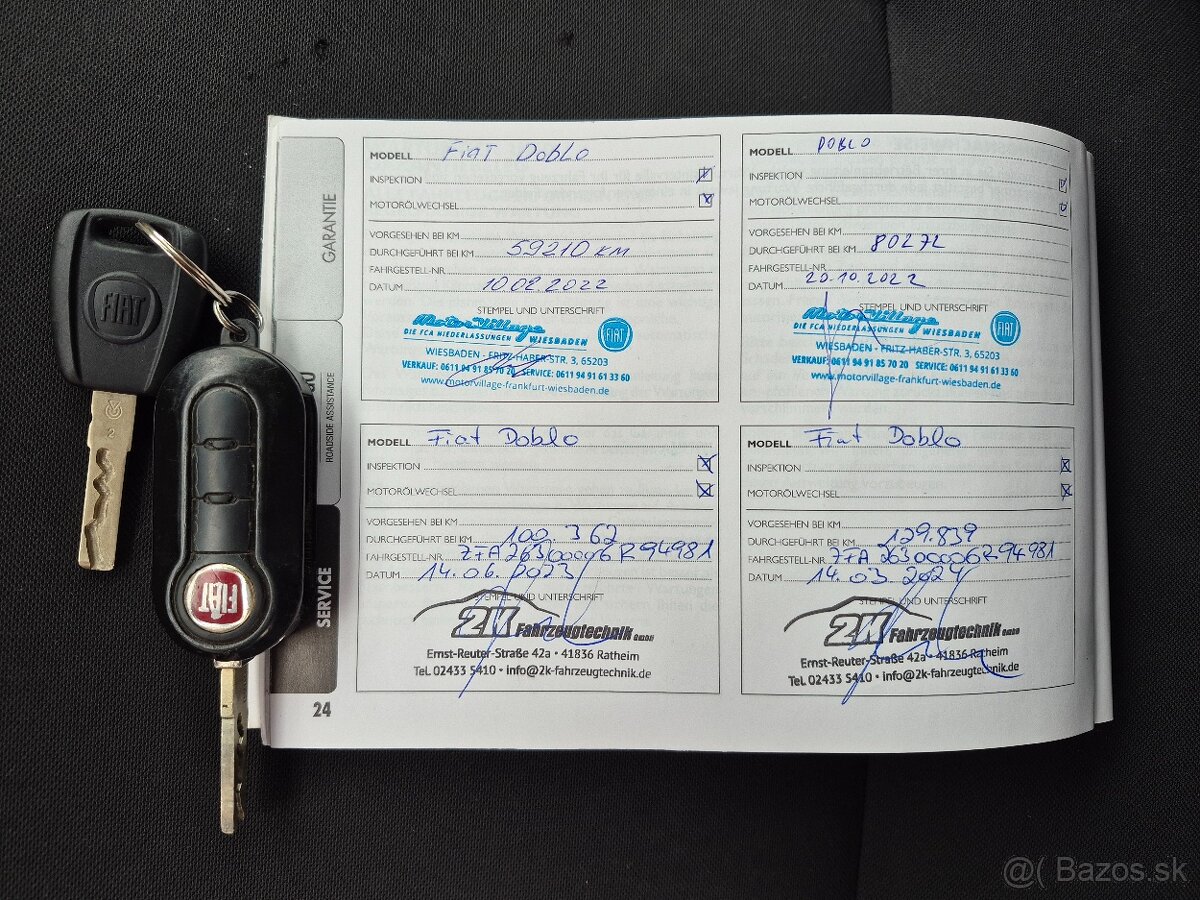 GARANTIE
ROADSIDE ASSISTANCE
SERVICE
24
MODELL Fiat Doblo
INSPEKTION
MOTORÖLWECHSEL
VORGESEHEN BEI KM
DURCHGEFÜHRT BEI KM 59210 KM
FAHRGESTELL-NR.
DATUM 10.02.2022
STEMPEL UND UNTERSCHRIFT
Motor Village
DIE FCA NIEDERLASSUNGEN WIESBADEN
FIAT
WIESBADEN - FRITZ-HABER-STR. 3, 65203
VERKAUF: 0611 94 91 85 70 20 SERVICE: 0611 94 91 61 33 60
www.motorvillage-frankfurt-wiesbaden.de
MODELL DOBLO
INSPEKTION
MOTORÖLWECHSEL
VORGESEHEN BEI KM
DURCHGEFÜHRT BEI KM 80272
FAHRGESTELL-NR.
DATUM 20.10.2022
STEMPEL UND UNTERSCHRIFT
Motor Village
DIE FCA NIEDERLASSUNGEN WIESBADEN
FIAT
WIESBADEN - FRITZ-HABER-STR. 3, 65203
VERKAUF: 0611 94 91 85 70 20 SERVICE: 0611 94 91 61 33 60
www.motorvillage-frankfurt-wiesbaden.de
MODELL Fiat Doblo
INSPEKTION
MOTORÖLWECHSEL
VORGESEHEN BEI KM
DURCHGEFÜHRT BEI KM 100.362
FAHRGESTELL-NR. ZFA26300006R94981
DATUM 14.06.2023
STEMPEL UND UNTERSCHRIFT
2K Fahrzeugtechnik GmbH
Ernst-Reuter-Straße 42a • 41836 Ratheim
Tel. 02433 5410 • info@2k-fahrzeugtechnik.de
MODELL Fiat Doblo
INSPEKTION
MOTORÖLWECHSEL
VORGESEHEN BEI KM
DURCHGEFÜHRT BEI KM 129.839
FAHRGESTELL-NR. ZFA26300006R94981
DATUM 14.03.2024
STEMPEL UND UNTERSCHRIFT
2K Fahrzeugtechnik GmbH
Ernst-Reuter-Straße 42a • 41836 Ratheim
Tel. 02433 5410 • info@2k-fahrzeugtechnik.de
FIAT
2
FIAT
@( Bazos.sk